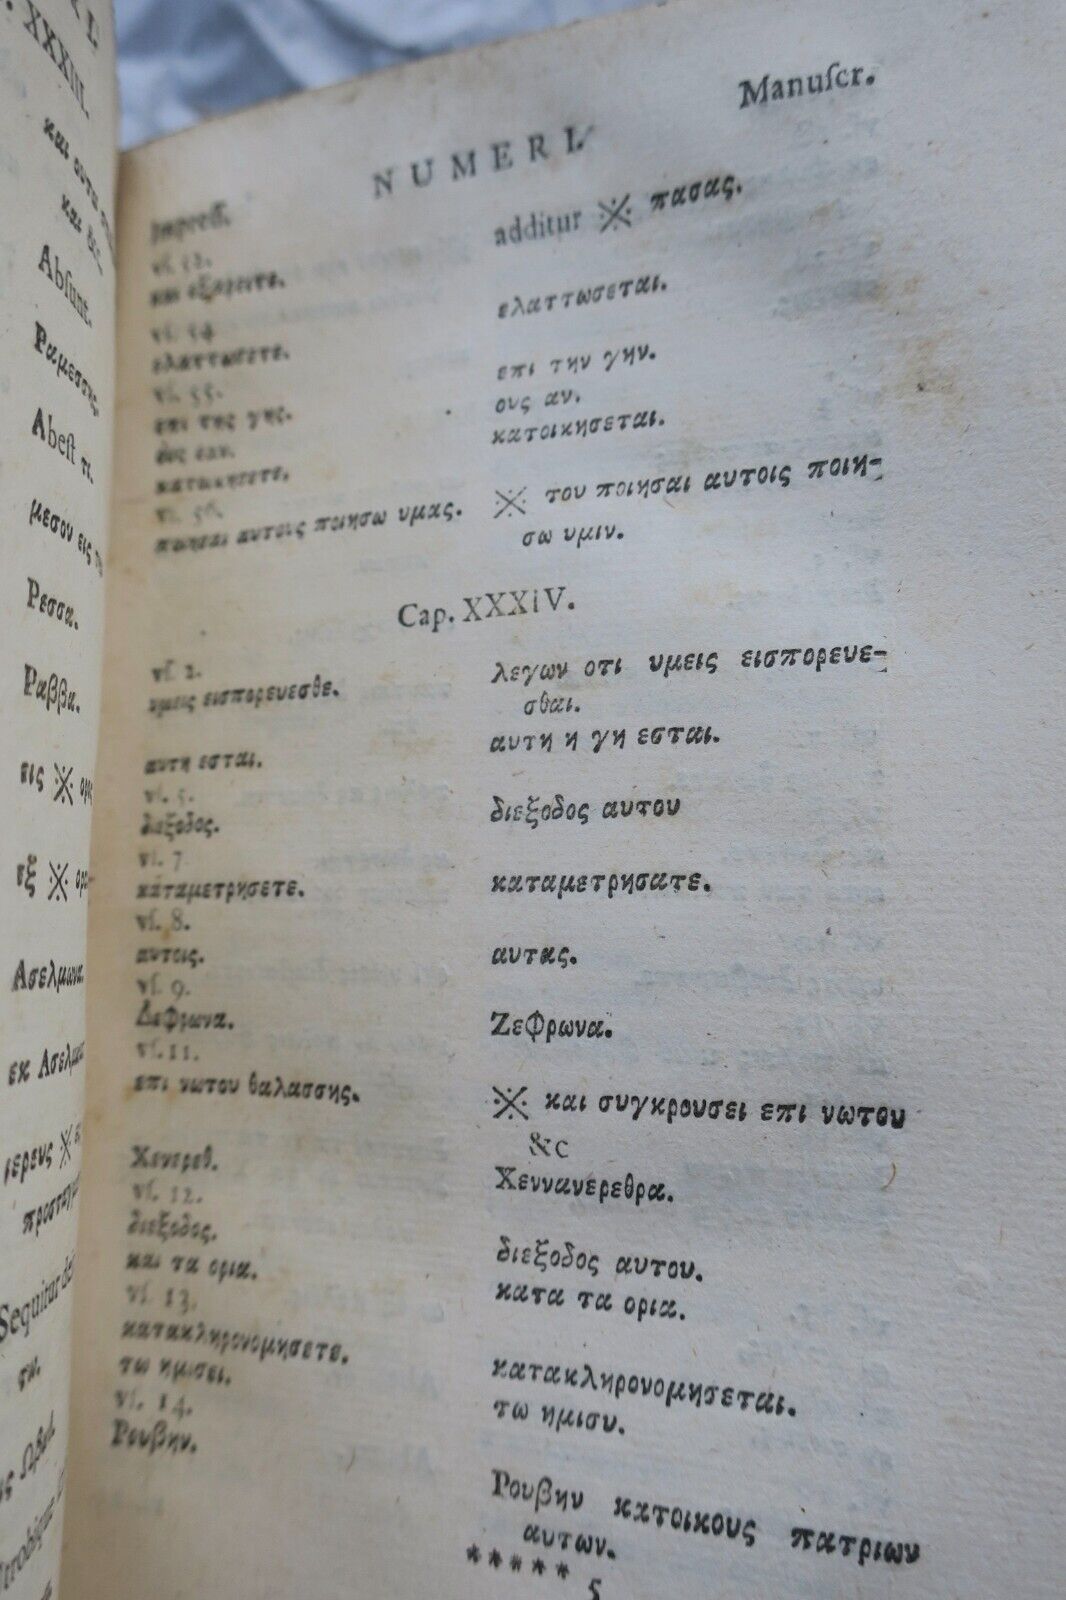 XXXIII.
και αυτα
Absunt.
Ραμεσσης.
Abest τι.
μεσον εις
Ρεσσα.
Ραββα.
εις ※
εξ ※
Ασελμωνα.
εκ Ασελμω
ιερευς ※
προσταγμα
Sequitur
NUMERI.
Manuſcr.
Impreſſ.
additur ※ πασας.
vſ. 52.
και εξαρειτε.
vſ. 54
ελαττωσεται.
ελαττωσετε.
vſ. 55.
επι την γην.
επι της γης.
ους αν.
ους εαν.
κατοικησεται.
κατοικησετε.
vſ. 56.
※ του ποιησαι αυτοις ποιη-
ποιησαι αυτους ποιησω υμας.
σω υμιν.
Cap. XXXiV.
vſ. 2.
λεγων οτι υμεις εισπορευε-
υμεις εισπορευεσθε.
σθαι.
αυτη η γη εσται.
αυτη εσται.
vſ. 5.
διεξοδος αυτου
διεξοδος.
vſ. 7
καταμετρησετε.
καταμετρησατε.
vſ. 8.
αυτοις.
αυτας.
vſ. 9.
Δεφρωνα.
Ζεφρωνα.
vſ. 11.
επι νωτου θαλασσης.
※ και συγκρουσει επι νωτου
&c
Χενερεθ.
Χεννανερεθρα.
vſ. 12.
διεξοδος.
διεξοδος αυτου.
και τα ορια.
κατα τα ορια.
vſ. 13.
κατακληρονομησετε.
κατακληρονομησεται.
τω ημισει.
τω ημισυ.
vſ. 14.
Ρουβην.
Ρουβην κατοικους πατριων
αυτων.
***** 5